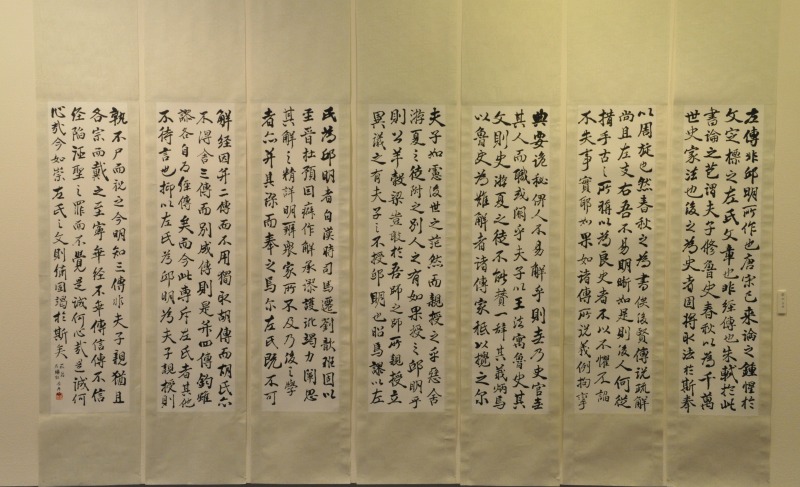 左傳非邱明所作也唐宋已來論之鍾惺於
文定標之左氏文章也非經傳也朱軾於此
書論之芑謂夫子修魯史春秋以為千萬
世史家法也後之為史者固將取法於斯奉
以周旋也然春秋之為書俟後賢傳說疏解
尚且左支右吾不易明晰如是則後人何從
措手古之所稱以為良史者不以不懼不諂
不失事實耶如果如諸傳所說義例拘牽
典要詭秘俾人不易解乎則董乃史官董
其人而職或闕乎夫子以王法寓魯史其
文則史游夏之徒不能贊一辞其義炳焉
以魯史為難解者諸傳家秪以攪之尔
夫子如憲後世之范然而親授之乎惡舍
游夏之徒附之別人之有如果授之邱明乎
則公羊穀梁豈敢於吾師之師所親授立
異議之有夫子之不授邱明也昭焉謀以左
氏為邱明者自漢時司馬遷劉歆班固以
至晉杜預因癖作解承漈護訛竭力闡思
其解之精詳明辨衆家所不及乃後之學
者亦并其漈而奉之焉尔左氏既不可
解經因并二傳而不用獨取胡傳而胡氏亦
不得舍三傳而別成傳則是并四傳鈞雖
諮各自為經傳矣而今此專斥左氏者其他
不待言也抑以左氏為邱明為夫子親授則
孰不尸而祝之今明知三傳非夫子親猶且
各宗而戴之至寧舉經不幸傳信傳不信
經陷誣聖之罪而不覺是誠何心哉是誠何
心哉今如崇左氏之文則倚固竭於斯矣